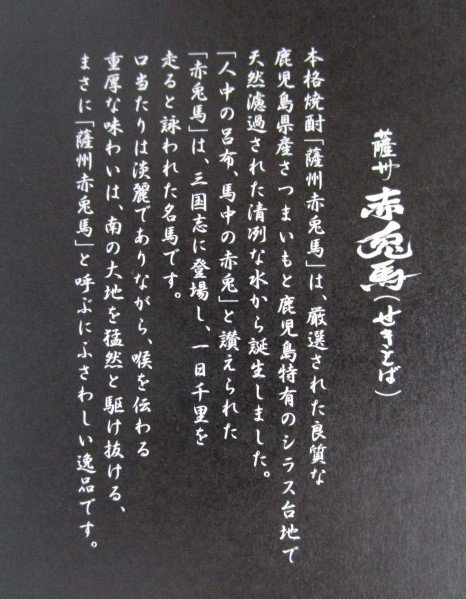 薩州 赤兎馬(せきとば)
本格焼酎「薩州赤兎馬」は、厳選された良質な
鹿児島県産さつまいもと鹿児島特有のシラス台地で
天然濾過された清冽な水から誕生しました。
「人中の呂布、馬中の赤兎」と讃えられた
「赤兎馬」は、三国志に登場し、一日千里を
走ると詠われた名馬です。
口当たりは淡麗でありながら、喉を伝わる
重厚な味わいは、南の大地を猛然と駆け抜ける、
まさに「薩州赤兎馬」と呼ぶにふさわしい逸品です。